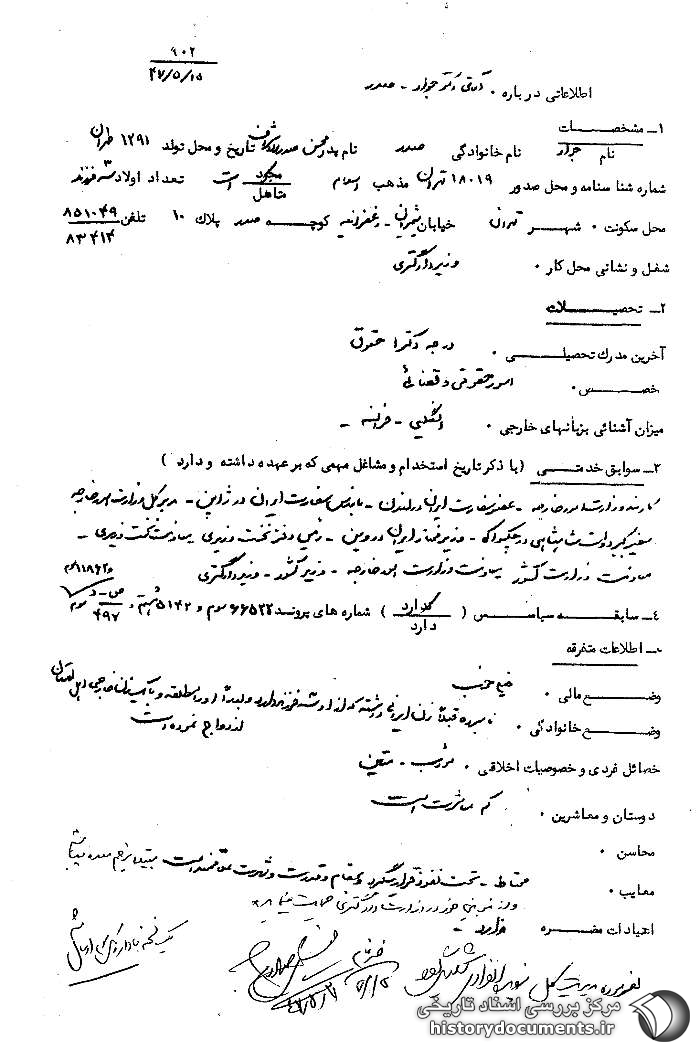 ۹۰۲
۴۷/۵/۱۵
اطلاعاتی درباره ۰ آقای دکتر جواد - صدر
۱ـ مشخصات
نام جواد نام خانوادگی صدر نام پدر محسن صدرالاشراف تاریخ و محل تولد ۱۲۹۱ طهران
شماره شناسنامه و محل صدور ۱۸۰۱۹ تهران مذهب اسلام مجرد متاهل است تعداد اولاد سه فرزند ۳
محل سکونت ۰ شهر تهران خیابان شمیران - زعفرانیه کوچه صدر پلاک ۱۰ تلفن ۸۵۱۰۴۹
۸۳۴۱۴
شغل و نشانی محل کار ۰ وزیر دادگستری
۲ـ تحصیلات
آخرین مدرک تحصیلی ۰ درجه دکترا حقوق
خصص ۰ امور حقوقی و قضائی
میزان آشنائی بزبانهای خارجی ۰ انگلیسی - فرانسه -
۳ـ سوابق خدمتی (با ذکر تاریخ استخدام و مشاغل مهمی که بر عهده داشته و دارد )
کارمند وزارت امور خارجه - عضو سفارت ایران در لندن - سفارت ایران در ژاپن - مدیر کل وزارت امور خارجه
سفیر کبیر دولت شاهنشاهی در - وزیر مختار ایران در وین - رئیس دفتر نخست وزیری معاونت نخست وزیری -
معاونت وزارت کشور معاونت وزارت امور خارجه - وزیر کشور - وزیر دادگستری
۴ـ سابقه سیاسی ( ندارد دارد ) شماره های پرونده ۶۶۵۲۲ سوم و ۵۱۴۲ و ۴۹۷
ـ اطلاعات متفرقه
وضع مالی ۰ خیلی خوب
وضع خانوادگی ۰ نامبرده قبلاً زن ایرانی داشته که از او سه فرزند دارد و بعداً او را طلاقه و با یک زن خارجی اهل
ازدواج نموده است
خصائل فردی و خصوصیات اخلاقی ۰ مؤدب - متین
دوستان و معاشرین ۰ کم معاشرت است
محاسن ۰
معایب ۰ محتاط - تحت نفوذ قرار میگیرد و بمقام و قدرت و ثروت علاقمند است
در وزارت دادگستری حمایت مینماید
اعتیادات مضره ندارد -
۴۷/۵/
مرکز بررسی اسناد تاریخی
historydocuments.ir